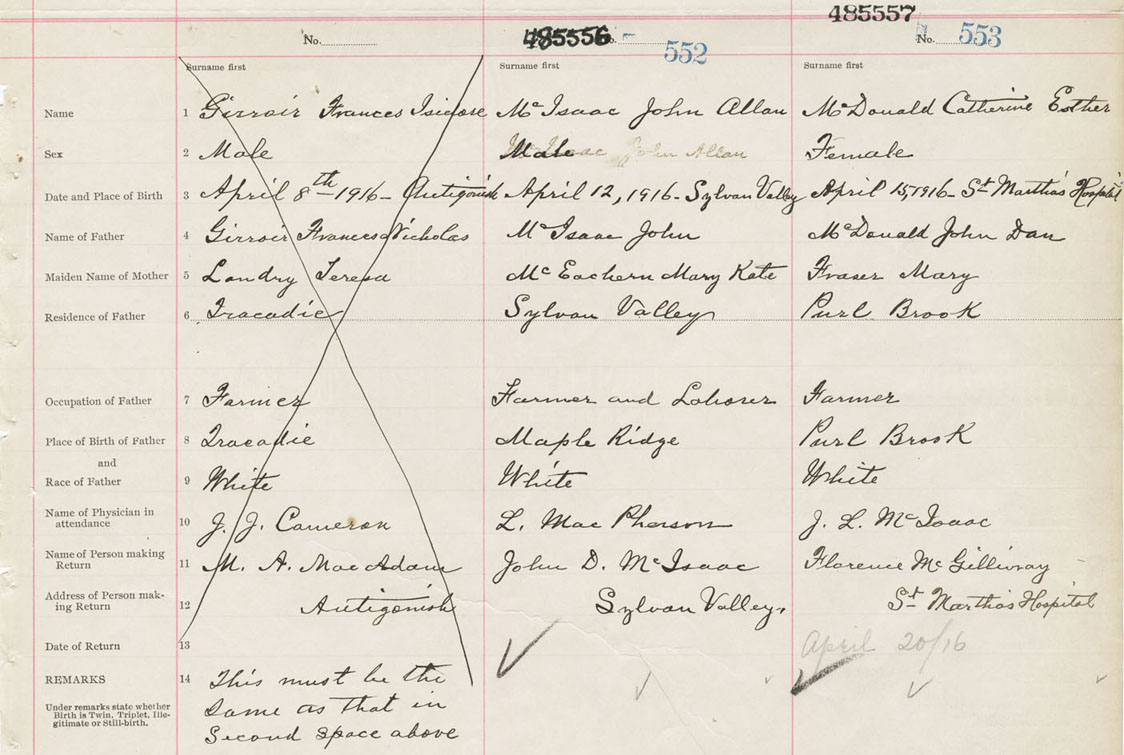 485557
No. 485556 No. 552 No. 553
Surname first Surname first Surname first
Name 1 Girroir Frances Isidore McIsaac John Allan McDonald Catherine Esther
Sex 2 Male Male John Allan Female
Date and Place of Birth 3 April 8th 1916 - Antigonish April 12, 1916 - Sylvan Valley April 15, 1916 - St Martha's Hospital
Name of Father 4 Girroir Frances Nicholas McIsaac John McDonald John Dan
Maiden Name of Mother 5 Landry Teresa McEachern Mary Kate Fraser Mary
Residence of Father 6 Tracadie Sylvan Valley Purl Brook
Occupation of Father 7 Farmer Farmer and Laborer Farmer
Place of Birth of Father 8 Tracadie Maple Ridge Purl Brook
and
Race of Father 9 White White White
Name of Physician in
attendance 10 J. J. Cameron L. MacPherson J. L. McIsaac
Name of Person making
Return 11 M. A. MacAdam John D. McIsaac Florence McGillivray
Address of Person mak-
ing Return 12 Antigonish Sylvan Valley. St Martha's Hospital
Date of Return 13 April 20/16
REMARKS 14 This must be the
Under remarks state whether
Birth is Twin, Triplet, Ille-
gitimate or Still-birth.
same as that in
second space above